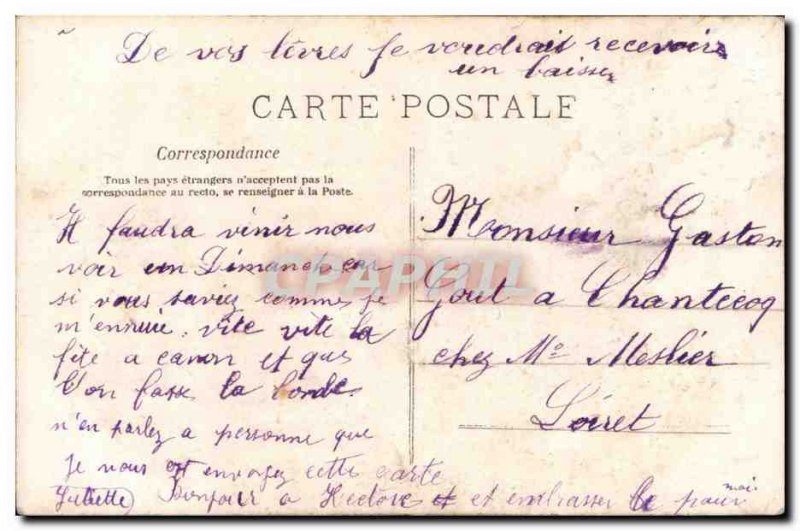 De vos lèvres je voudrais recevoir
un baiser
CARTE POSTALE
Correspondance
Tous les pays étrangers n'acceptent pas la
correspondance au recto, se renseigner à la Poste.
Il faudra vinir nous
voir un Dimanch car
si vous saviez comme je
m'ennuie. vite vite la
fête a canon et que
l'on fasse la bonde
n'en parlez a personne que
je vous ai envoyez cette carte
Juliette) Bonjour a Hectore et et embrasser le pour moi
Monsieur Gaston
Gout a Chantecoq
chez Mo Meslier
Loiret
CPAPHIL